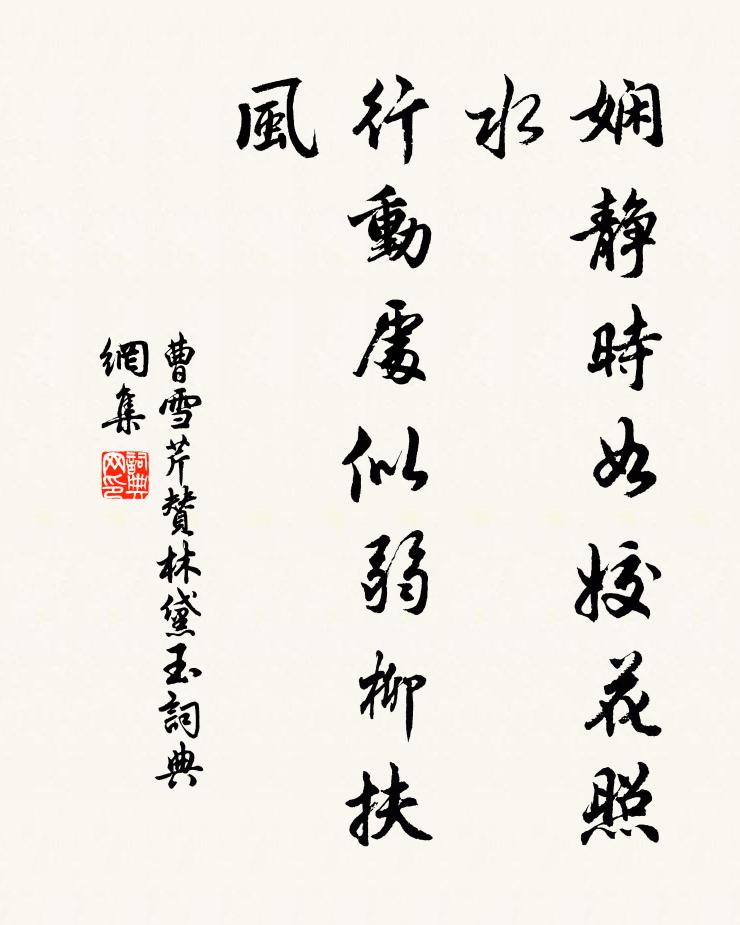 嫻静時如姣花照
水
行動處似弱柳扶
風
曹雪芹贊林黛玉詞典
網集
詞典
网印